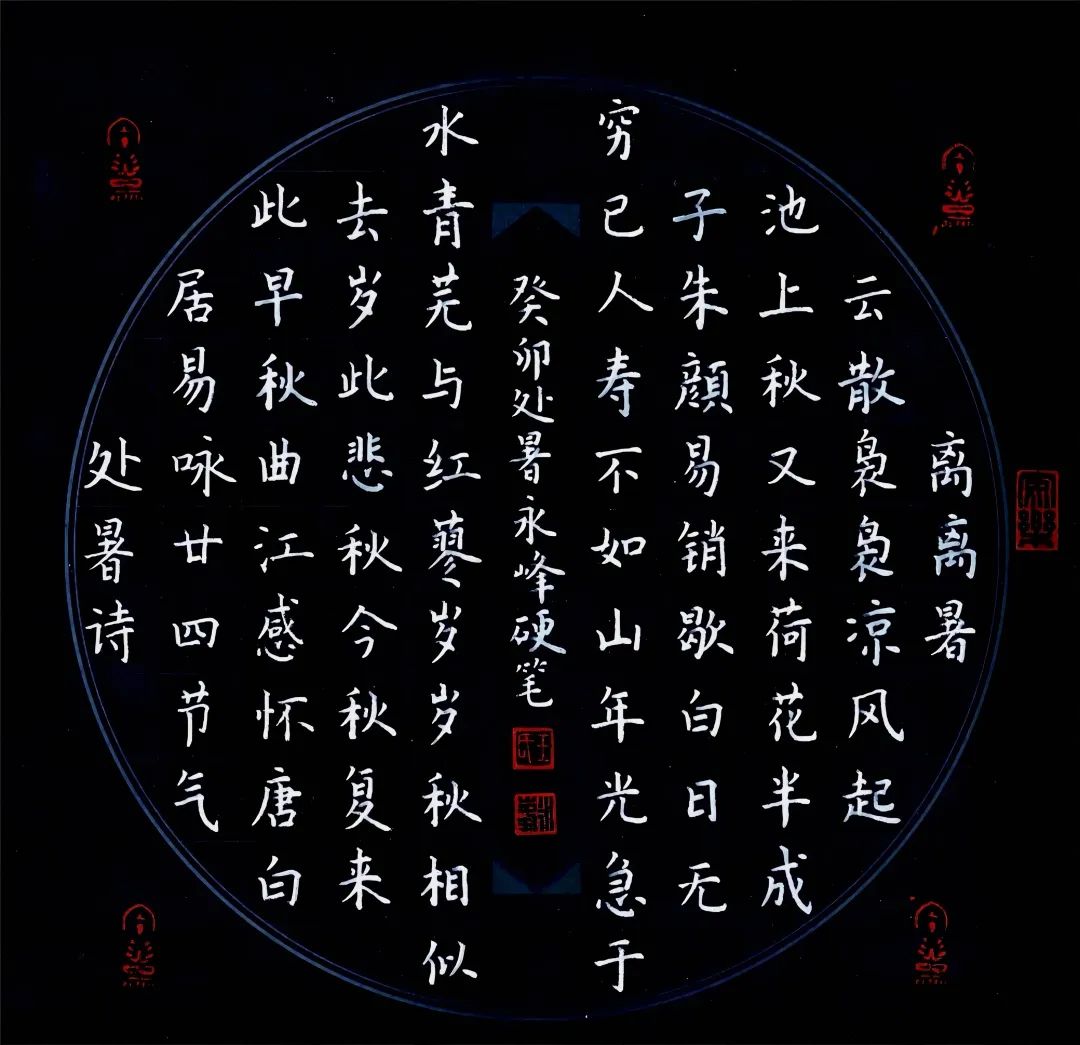 离离暑
云散袅袅凉风起
池上秋又来荷花半成
子朱顔易销歇白日无
穷已人寿不如山年光急于
癸卯处暑永峰硬笔
水青芜与红蓼岁岁秋相似
去岁此悲秋今秋复来
此早秋曲江感怀唐白
居易咏廿四节气
处暑诗